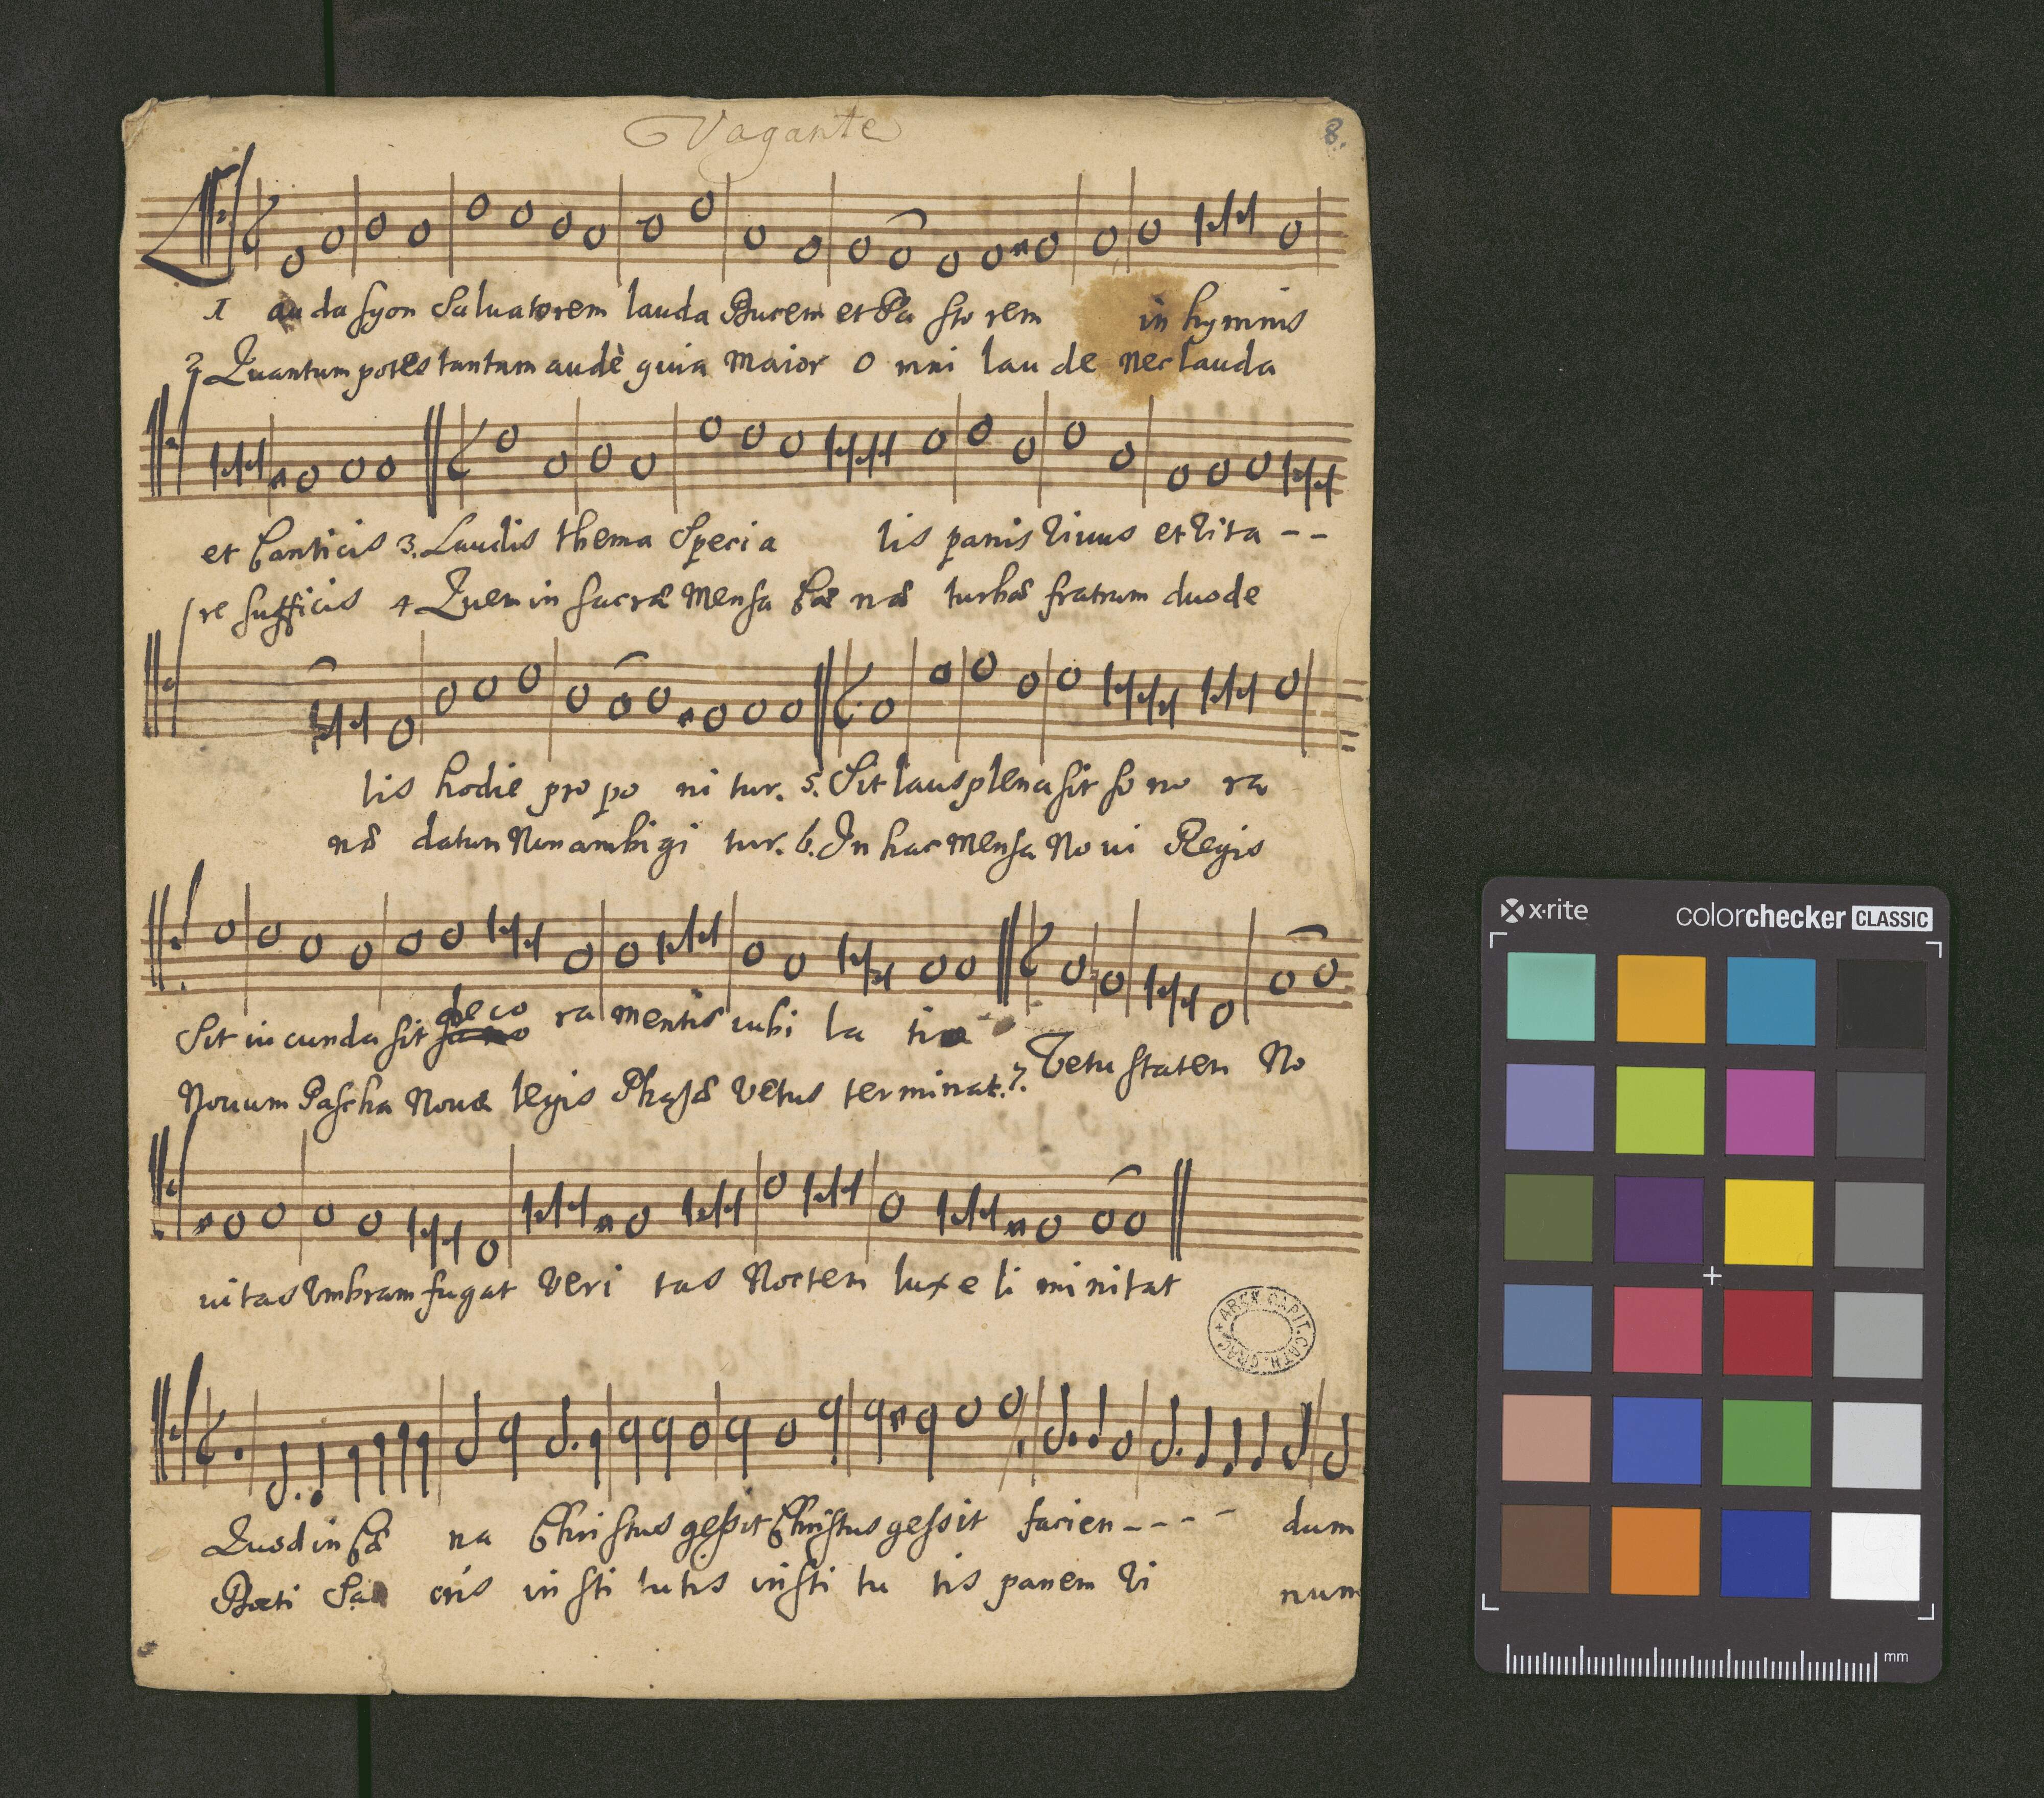 Vagante
8.
1 auda syon Saluatorem lauda Ducem et Pa sto rem in hymnis
2 Quantum potes tantum audè quia maior o mni lau de nec lauda
et Canticis 3. Laudis thema Specia lis panis Viuus et Vita - -
re sufficis 4 Quem in sacræ mensa Cæ næ turbæ fratrum duode
lis hodie pro po ni tur. 5. Sit laus plena sit so no ra
næ datum Non ambigi tur. 6. In hac mensa No ui Regis
Sit iucunda sit deco ra mentis iubi la tio
Nouum Pascha Nouæ legis Phasæ Vetus terminat. 7. Vetustatem No
uitas Vmbram fugat Veri tas Noctem lux e li minitat
ARCH. CAPIT. CATH. CRAC.
Quod in Cæ na Christus gessit Christus gessit facien - - - - dum
Docti Sa cris in sti tutis insti tu tis panem Vi num
x-rite
colorchecker CLASSIC
mm